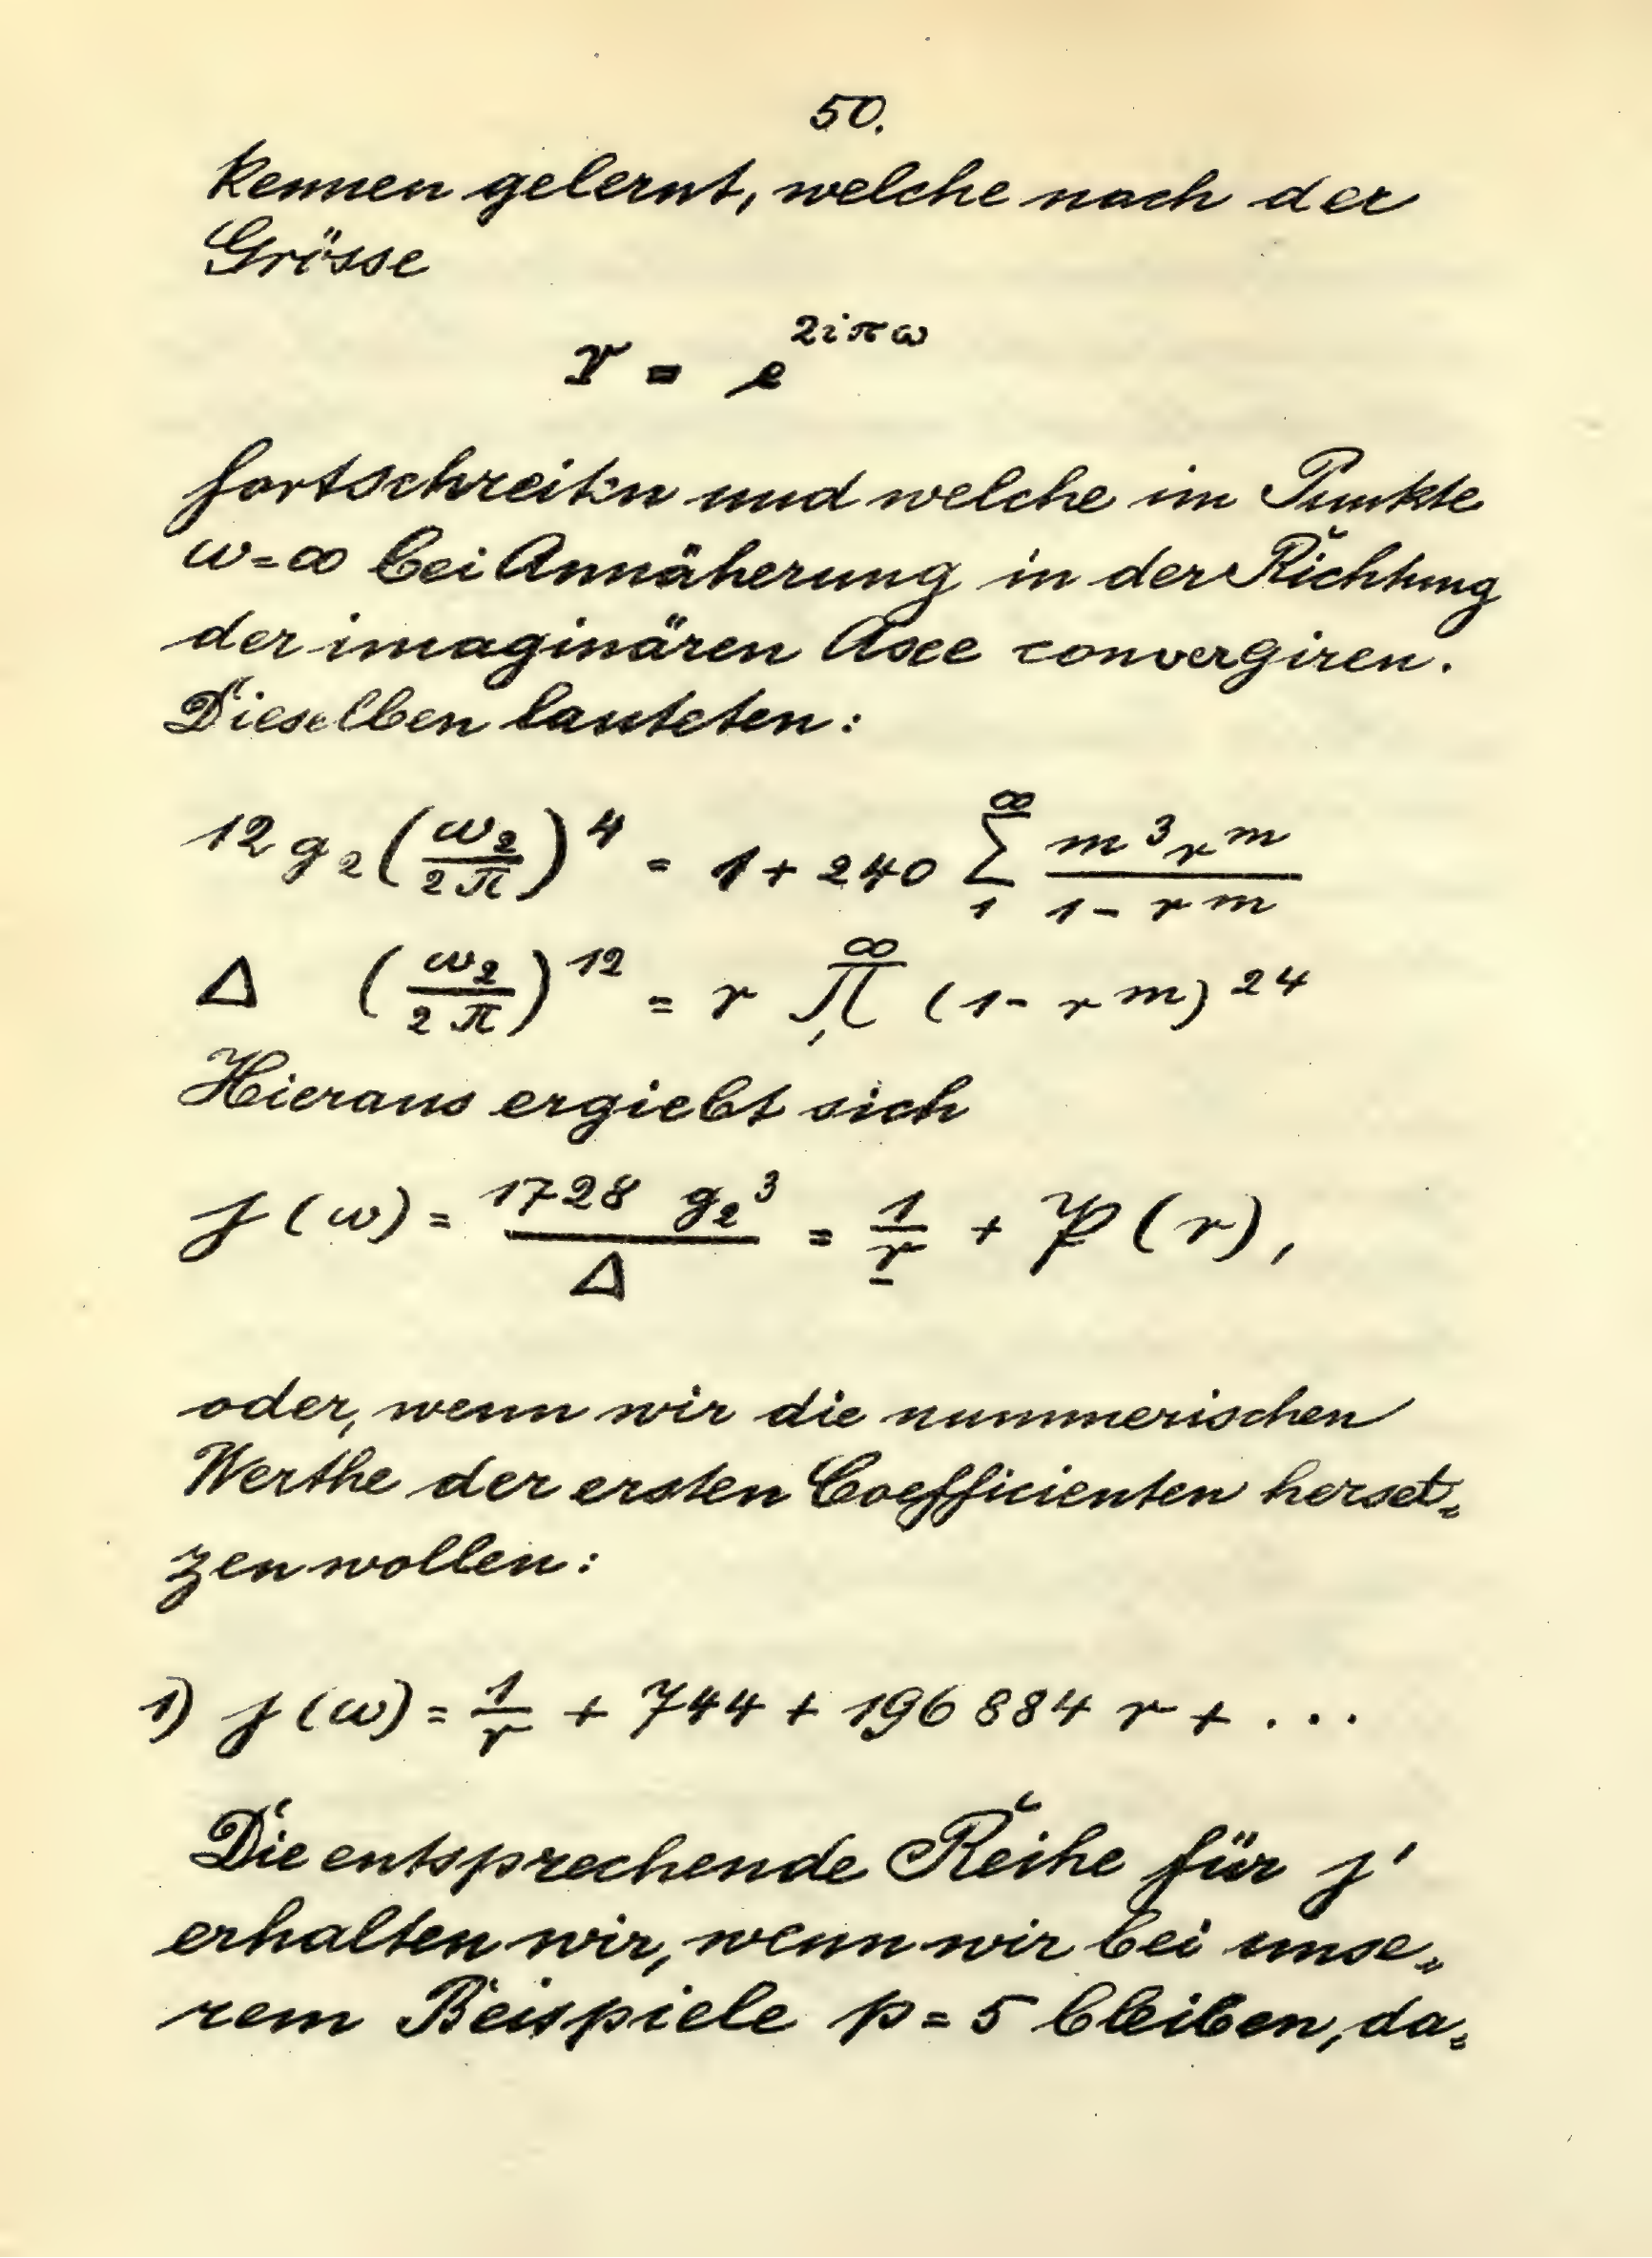 50.
kennen gelernt, welche nach der
Grösse
r = e^{2iπω}
fortschreiten und welche im Punkte
ω=∞ bei Annäherung in der Richtung
der imaginären Axe convergiren.
Dieselben lauteten:
12 g_2 (\frac{ω_2}{2π})^4 = 1 + 240 \sum_1^∞ \frac{m^3 r^m}{1 - r^m}
Δ (\frac{ω_2}{2π})^{12} = r \prod_1^∞ (1 - r^m)^{24}
Hieraus ergiebt sich
j(ω) = \frac{1728 g_2^3}{Δ} = \frac{1}{r} + 𝔓(r),
oder, wenn wir die nummerischen
Werthe der ersten Coefficienten herset=
zen wollen:
1) j(ω) = \frac{1}{r} + 744 + 196 884 r + . . .
Die entsprechende Reihe für j'
erhalten wir, wenn wir bei unse=
rem Beispiele p = 5 bleiben, da=